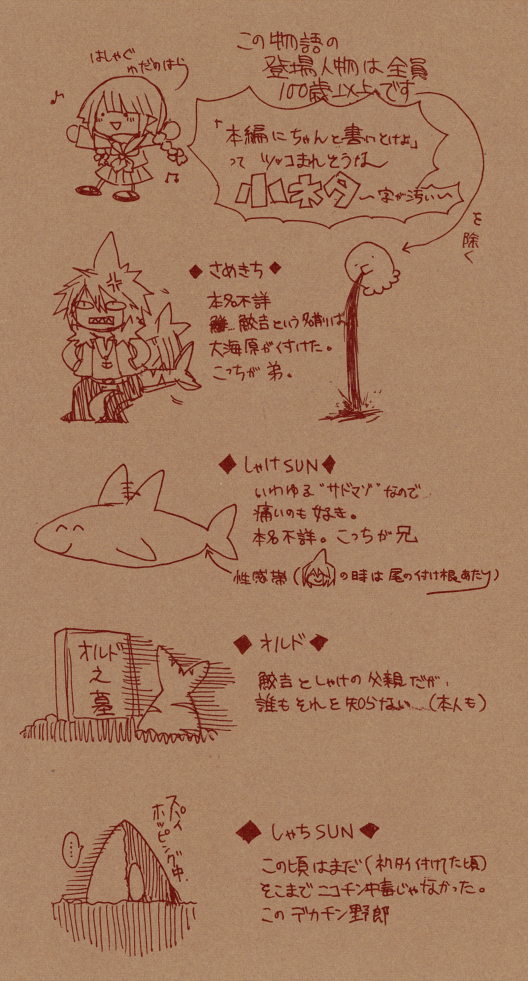 この物語の
登場人物は全員
100歳以上です
はしゃぐ
わだのはら
「本編にちゃんと書いとけよ」
って ツッコまれそうな
小ネタ 〜字が汚い〜
を除く
◆ さめきち ◆
本名不詳
鮫吉という名前は
大海原が付けた。
こっちが弟。
◆ しゃけSUN ◆
いわゆる"サドマゾ"なので
痛いのも好き。
本名不詳。こっちが兄
性感帯(の時は尾の付け根あたり)
◆ オルド ◆
オルド
之
墓
鮫吉としゃけの父親だが、
誰もそれを知らない…(本人も)
スパイ
ホッピング中.
…
◆ しゃちSUN ◆
この頃はまだ(ネクタイ付けてた頃)
そこまでニコチン中毒じゃなかった。
このデカチン野郎